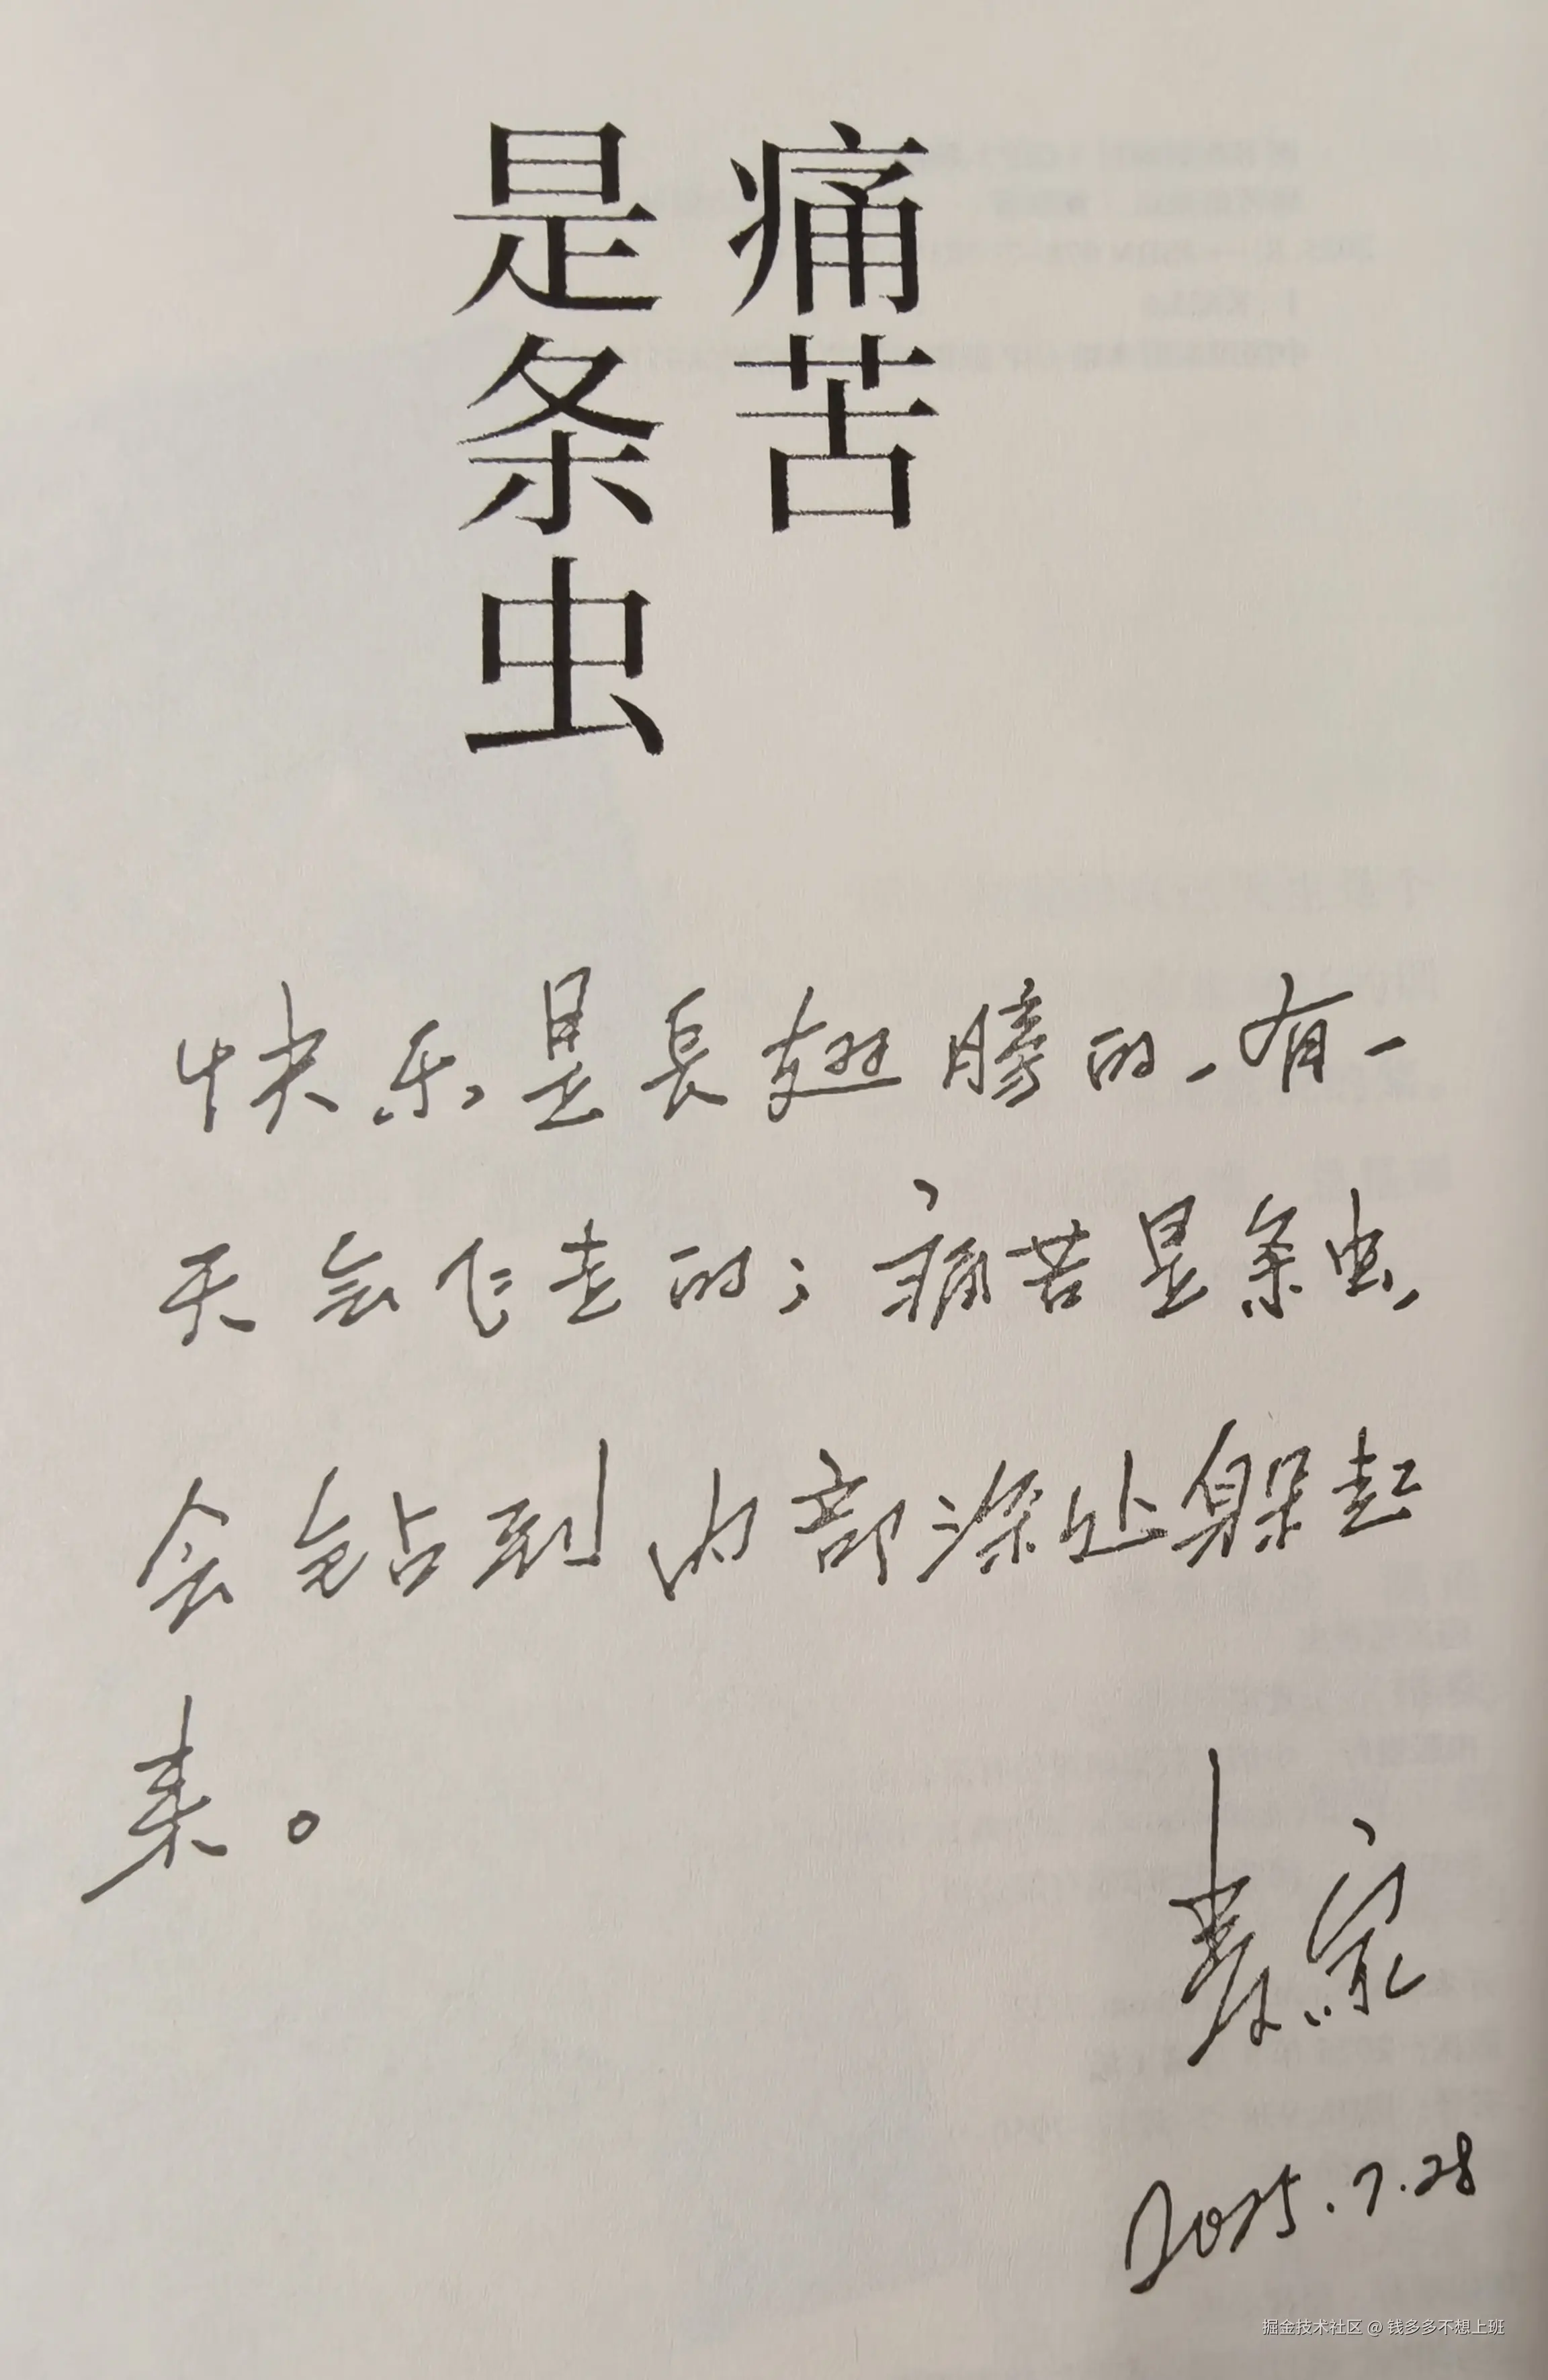 痛苦
是条虫
快乐是長翅膀的，有一
天会飞走的；痛苦是条虫，
会钻到内部深处躲起
来。
麦家
2025.7.28
掘金技术社区 @ 钱多多不想上班